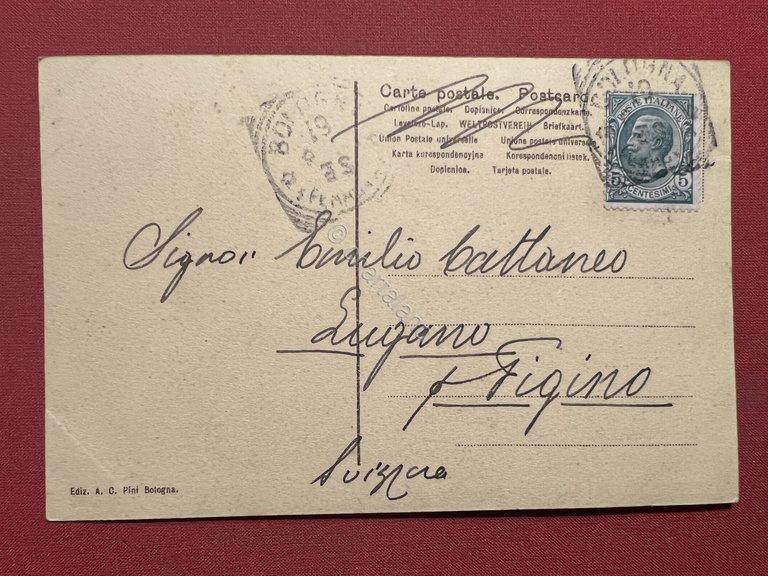 Carte postale. Postcard
Cartolina postale. Dopisnice. Correspondenzkarte.
Levelezo-Lap. WELTPOSTVEREIN Briefkaart.
Union Postale universelle Unione postale universale
Karta korespondencyjna Korespondencni listek.
Dopisnica. Tarjeta postale.
BOLOGNA
POSTE ITALIANE
5 5
CENTESIMI
Signor Emilio Cattaneo
Lugano
p Figino
Svizzera
Ediz. A. C. Pini Bologna.